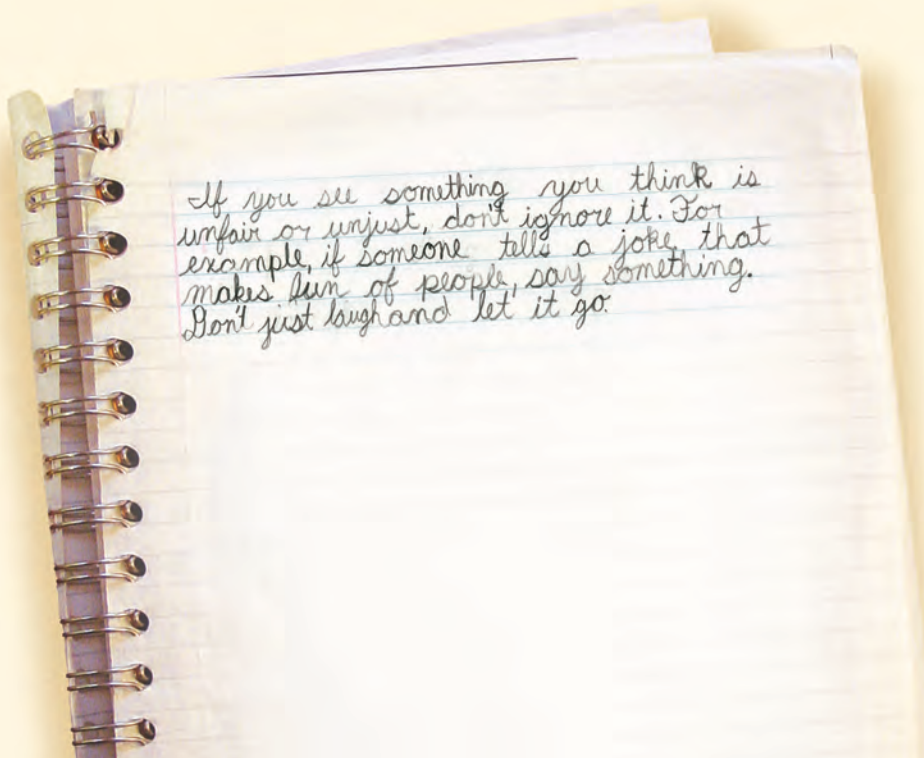 If you see something you think is
unfair or unjust, don't ignore it. For
example, if someone tells a joke that
makes fun of people, say something.
Don't just laugh and let it go.